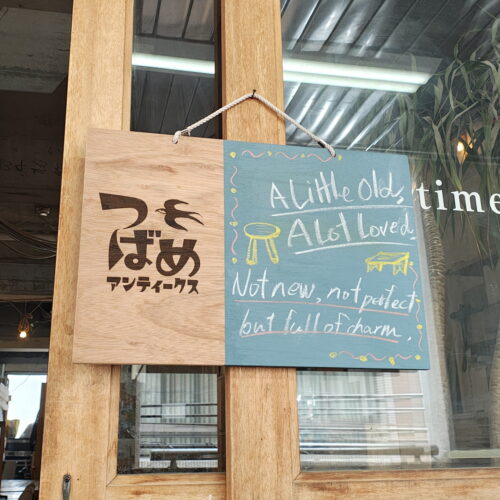 つばめ
アンティークス
A Little Old,
A Lot Loved.
Not new, not perfect
but full of charm.
time